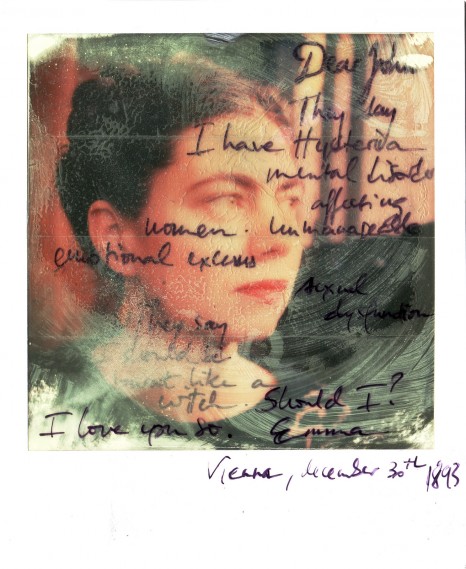 Dear John
They say
I have Hysteria
mental disorder
affecting
women. Unmanageable
emotional excess
sexual
dysfunction
They say
I should be
burnt like a
witch. Should I?
I love you so. Emma
Vienna, december 30th 1893